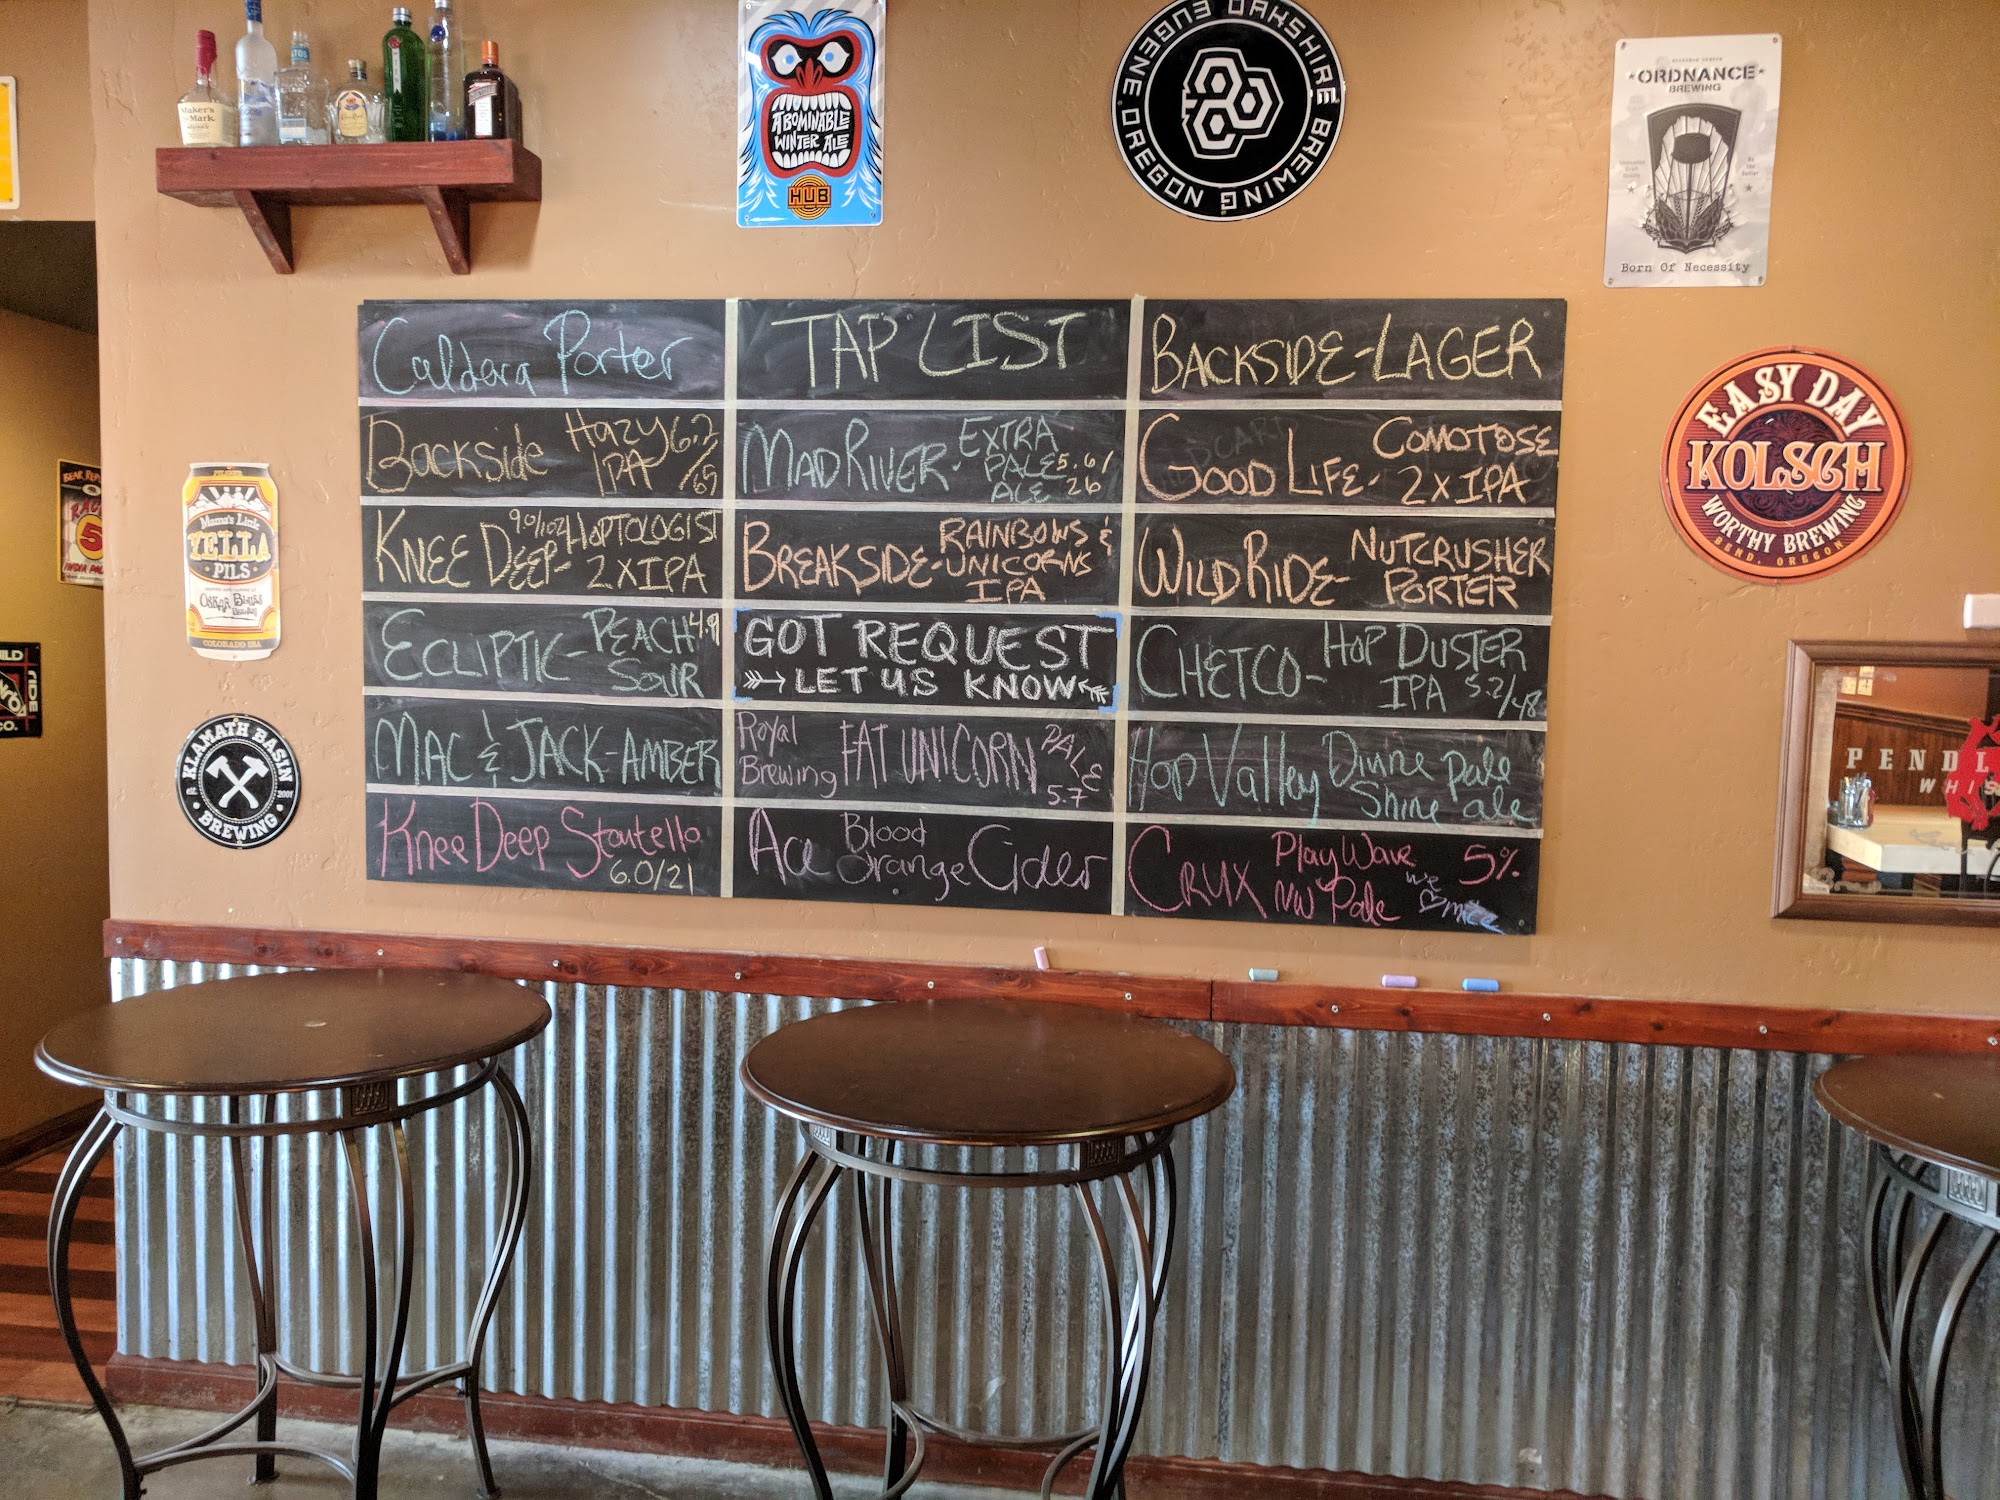 Maker's
Mark
ABOMINABLE
WINTER ALE
HUB
OAKSHIRE BREWING
EUGENE, OREGON
ORDNANCE
BREWING
Born Of Necessity
Caldera Porter
TAP LIST
BACKSIDE-LAGER
Backside Hazy IPA 6.2/69
MADRIVER- EXTRA PALE ALE 5.6/26
GOOD LIFE- COMOTOSE 2XIPA
KNEE DEEP- 9.0/102 HOPTOLOGIST 2XIPA
BREAKSIDE- RAINBOWS & UNICORNS IPA
WILD RIDE- NUTCRUSHER PORTER
ECLIPTIC- PEACH SOUR 4.9
GOT REQUEST
LET US KNOW
CHETCO- HOP DUSTER IPA 5.2/48
MAC & JACK-AMBER
Royal Brewing FAT UNICORN PALE 5.7
Hop Valley Divine Shine pale ale
Knee Deep Stoutella
6.0/21
Ace Blood Orange Cider
CRUX Play Wave NW Pale 5%
we
EASY DAY
KOLSCH
WORTHY BREWING
BEND, OREGON
PILSNER
Mama's Little
YELLA
PILS
Oskar Blues
COLORADO USA
KLAMATH BASIN
est. 2001
BREWING
BEAR REPUBLIC
RACER
5
INDIA PALE
WILD
RIDE
CO.
PENDL
WHIS